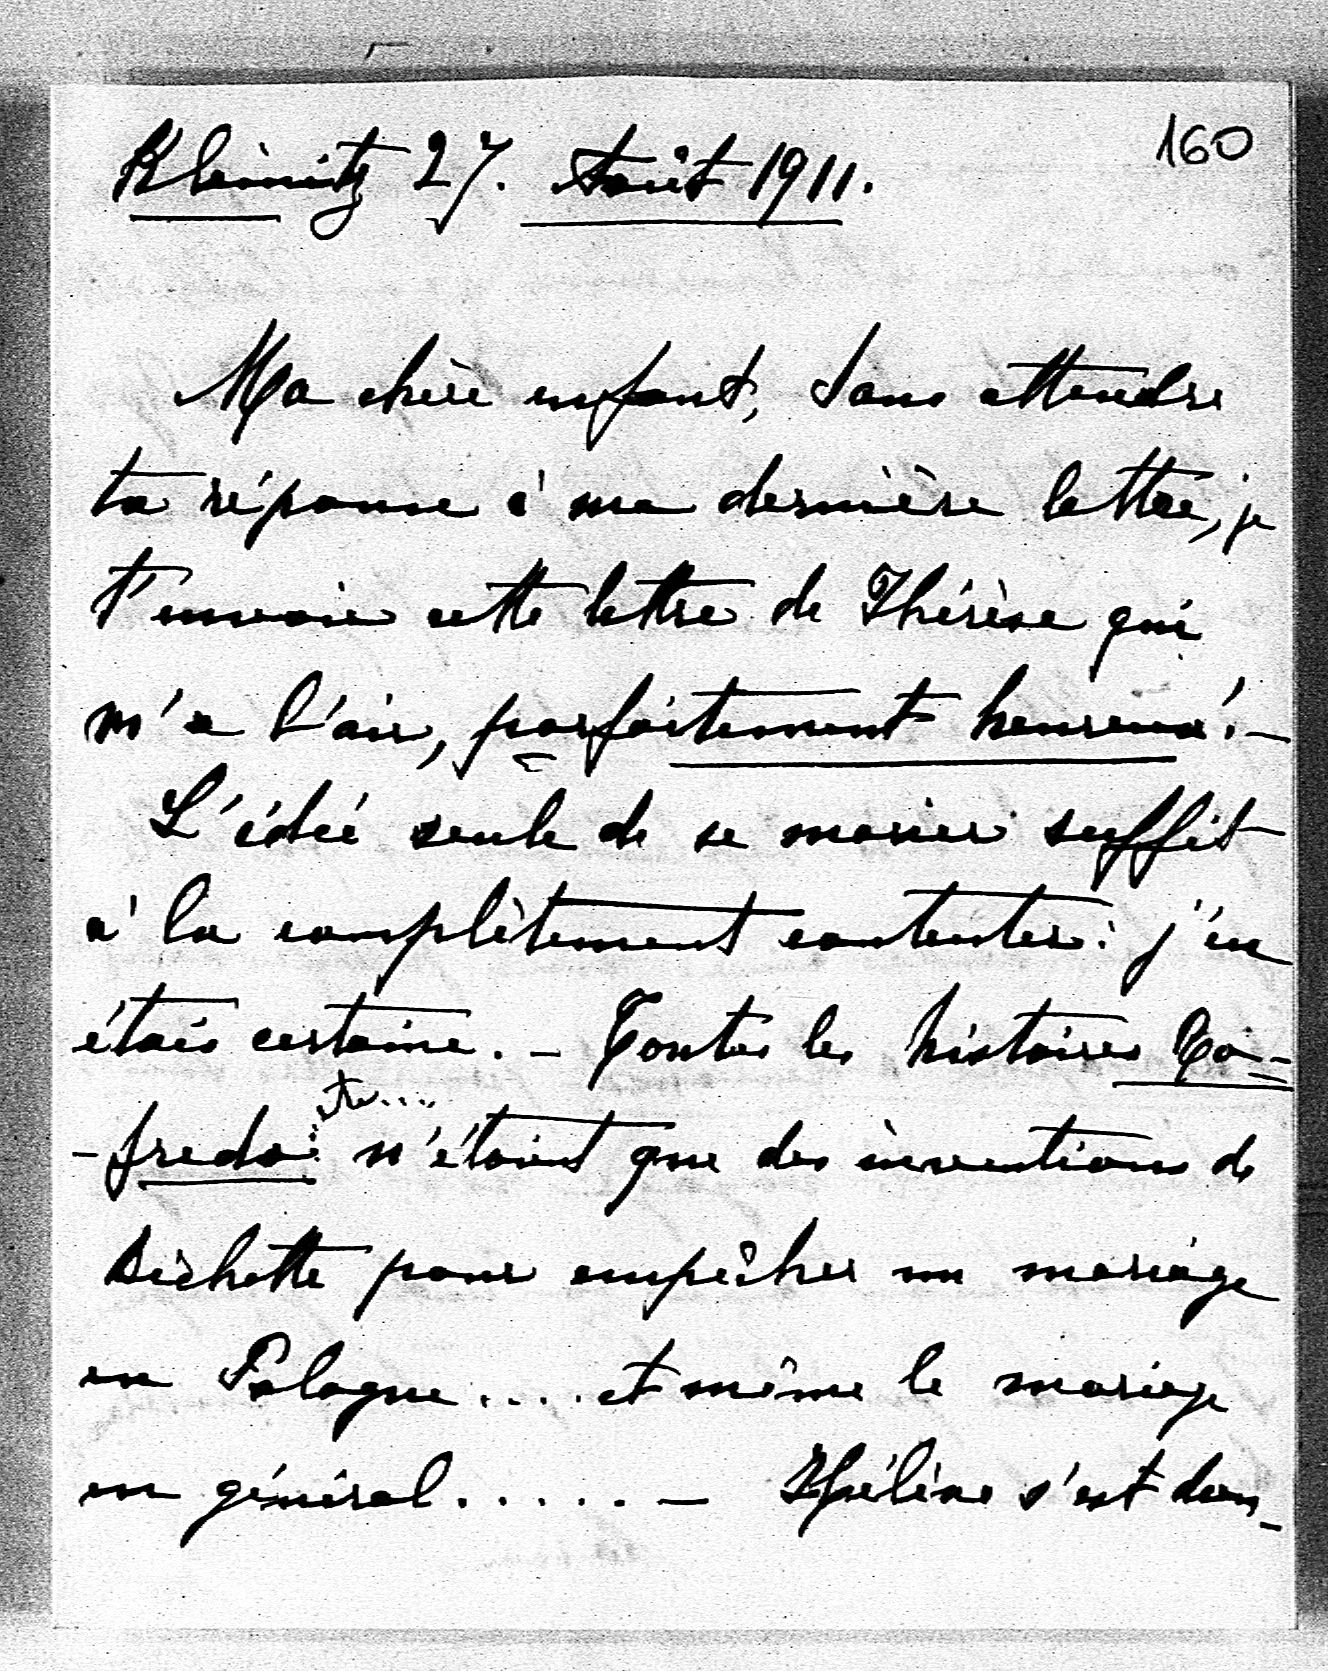 160
Kleinitz 27. Août 1911.
Ma chère enfant, Sans attendre
ta réponse à ma dernière lettre, je
t'envoie cette lettre de Thérèse qui
m'a l'air, parfaitement heureux! –
L'idée seule de se marier suffit
à la complètement contenter: j'en
étais certaine. – Toutes les histoires
etc...
n'étaient que des inventions de
Bichette pour empêcher un mariage
en Pologne.... et même le mariage
en général...... – Hélène s'est don-